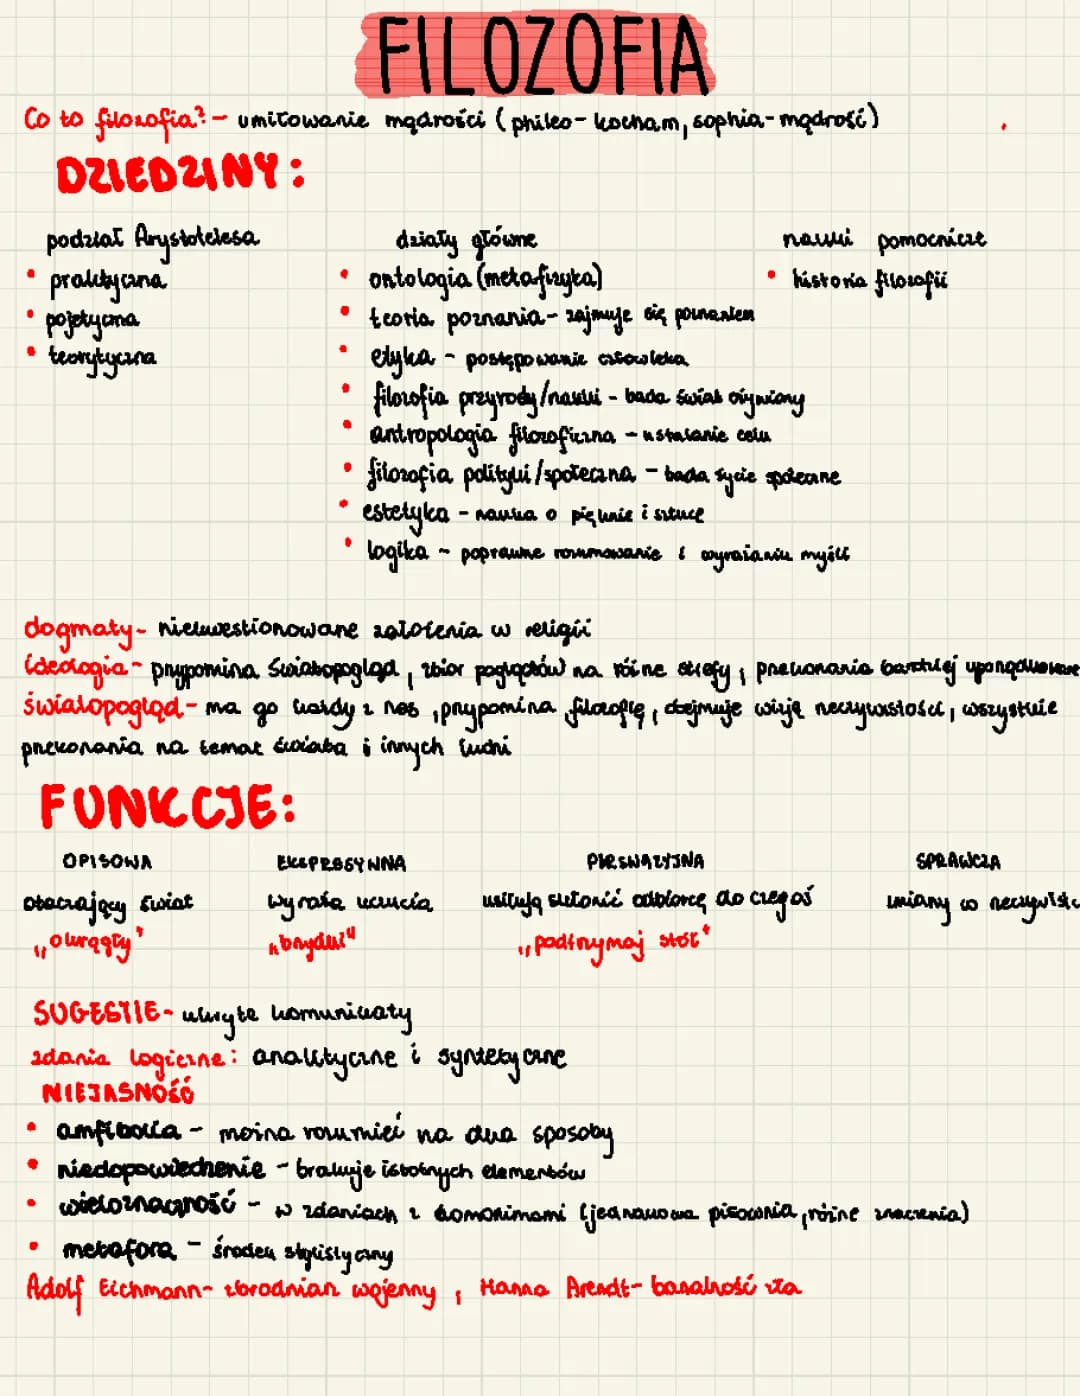 FILOZOFIA
Co to filozofia? - umiłowanie mądrości (phileo - kocham, sophia - mądrość)
DZIEDZINY:
podział Arystotelesa
• praktyczna
• pojetyczna
• teorytyczna
działy główne
• ontologia (metafizyka)
• teoria poznania - zajmuje się poznaniem
• etyka - postępowanie człowieka
• filozofia przyrody/nauki - bada świat ożywiony
• antropologia filozoficzna - ustalanie celu
• filozofia polityki/społeczna - bada życie społeczne
• estetyka - nauka o pięknie i sztuce
• logika - poprawne rozumowanie i wyrażaniu myśli
nauki pomocnicze
• historia filozofii
dogmaty - niekwestionowane założenia w religii
ideologia - przypomina światopogląd, zbiór poglądów na różne strefy, przekonania bardziej uporządkowane
światopogląd - ma go każdy z nas, przypomina filozofię, obejmuje wizję rzeczywistości, wszystkie
przekonania na temat świata i innych ludzi
FUNKCJE:
OPISOWA
otaczający świat
„okrągły"
EKSPRESYWNA
wyraża uczucia
„brzydki"
PERSWAZYJNA
usiłują skłonić odbiorcę do czegoś
„podtrzymaj stół"
SPRAWCZA
zmiany w rzeczywistc
SUGESTIE - ukryte komunikaty
zdania logiczne: analityczne i syntetyczne
NIEJASNOŚĆ
• amfibolia - można rozumieć na dwa sposoby
• niedopowiedzenie - brakuje istotnych elementów
• wieloznaczność - w zdaniach z homonimami (jednakowa pisownia, różne znaczenia)
• metafora - środek stylistyczny
Adolf Eichmann - zbrodniarz wojenny, Hanna Arendt - banalność zła